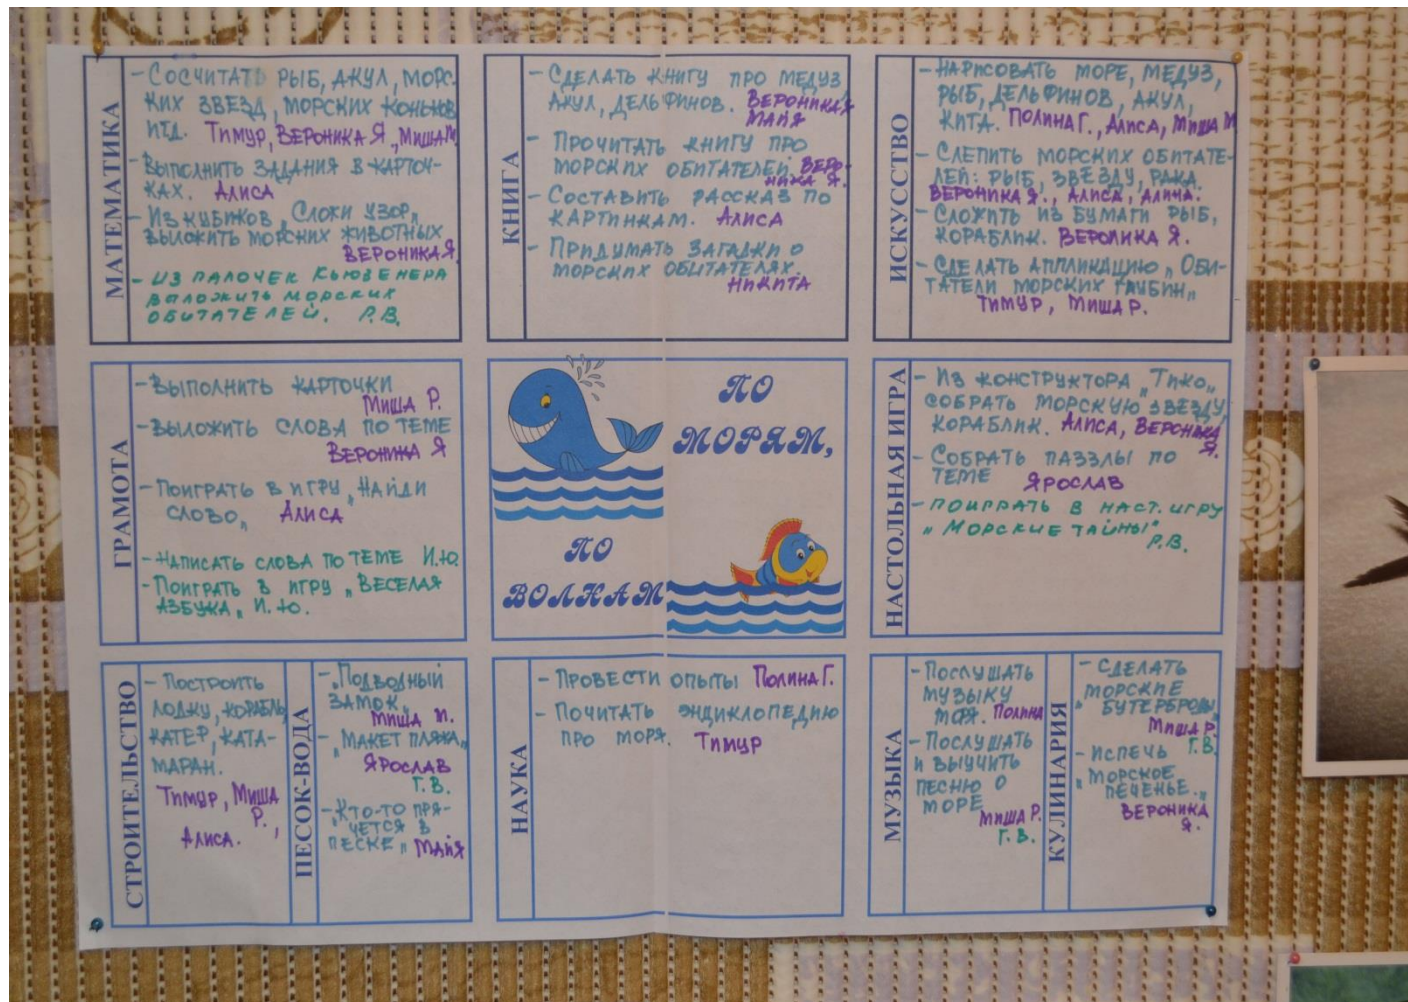 МАТЕМАТИКА
- СОСЧИТАТЬ РЫБ, АКУЛ, МОРС-
КИХ ЗВЕЗД, МОРСКИХ КОНЬКОВ
ИТД. ТИМУР, ВЕРОНИКА Я., МИША М.
- ВЫПОЛНИТЬ ЗАДАНИЯ В КАРТОЧ-
КАХ. АЛИСА
- ИЗ КУБИКОВ „СЛОЖИ УЗОР„
ВЫЛОЖИТЬ МОРСКИХ ЖИВОТНЫХ
ВЕРОНИКА Я.
- ИЗ ПАЛОЧЕК КЬЮЗЕНЕРА
ВЫЛОЖИТЬ МОРСКИХ
ОБИТАТЕЛЕЙ. Р.В.
КНИГА
- СДЕЛАТЬ КНИГУ ПРО МЕДУЗ,
АКУЛ, ДЕЛЬФИНОВ. ВЕРОНИКА Я
МАЙЯ
- ПРОЧИТАТЬ КНИГУ ПРО
МОРСКИХ ОБИТАТЕЛЕЙ. ВЕРО-
НИКА Я.
- СОСТАВИТЬ РАССКАЗ ПО
КАРТИНКАМ. АЛИСА
- ПРИДУМАТЬ ЗАГАДКИ О
МОРСКИХ ОБИТАТЕЛЯХ.
НИКИТА
ИСКУССТВО
- НАРИСОВАТЬ МОРЕ, МЕДУЗ,
РЫБ, ДЕЛЬФИНОВ, АКУЛ,
КИТА. ПОЛИНА Г., АЛИСА, МИША М.
- СЛЕПИТЬ МОРСКИХ ОБИТАТЕ-
ЛЕЙ: РЫБ, ЗВЕЗДУ, РАКА.
ВЕРОНИКА Я., АЛИСА, АЛИНА.
- СЛОЖИТЬ ИЗ БУМАГИ РЫБ,
КОРАБЛИК. ВЕРОНИКА Я.
- СДЕЛАТЬ АППЛИКАЦИЮ „ОБИ-
ТАТЕЛИ МОРСКИХ ГЛУБИН„
ТИМУР, МИША Р.
ГРАМОТА
- ВЫПОЛНИТЬ КАРТОЧКИ
МИША Р.
- ВЫЛОЖИТЬ СЛОВА ПО ТЕМЕ
ВЕРОНИКА Я
- ПОИГРАТЬ В ИГРУ „НАЙДИ
СЛОВО„ АЛИСА
- НАПИСАТЬ СЛОВА ПО ТЕМЕ И.Ю.
- ПОИГРАТЬ В ИГРУ „ВЕСЕЛАЯ
АЗБУКА„ И.Ю.
ПО
МОРЯМ,
ПО
ВОЛНАМ
НАСТОЛЬНАЯ ИГРА
- ИЗ КОНСТРУКТОРА „ТИКО„
СОБРАТЬ МОРСКУЮ ЗВЕЗДУ,
КОРАБЛИК. АЛИСА, ВЕРОНИКА
Я.
- СОБРАТЬ ПАЗЗЛЫ ПО
ТЕМЕ ЯРОСЛАВ
- ПОИГРАТЬ В НАСТ. ИГРУ
„МОРСКИЕ ТАЙНЫ" Р.В.
СТРОИТЕЛЬСТВО
- ПОСТРОИТЬ
ЛОДКУ, КОРАБЛЬ,
КАТЕР, КАТА-
МАРАН.
ТИМУР, МИША
Р.,
АЛИСА.
ПЕСОК-ВОДА
- „ПОДВОДНЫЙ
ЗАМОК„
МИША М.
- „МАКЕТ ПЛЯЖА„
ЯРОСЛАВ
Г.В.
- „КТО-ТО ПРЯ-
ЧЕТСЯ В
ПЕСКЕ„ МАЙЯ
НАУКА
- ПРОВЕСТИ ОПЫТЫ ПОЛИНА Г.
- ПОЧИТАТЬ ЭНЦИКЛОПЕДИЮ
ПРО МОРЯ. ТИМУР
МУЗЫКА
- ПОСЛУШАТЬ
МУЗЫКУ
МОРЯ. ПОЛИНА
- ПОСЛУШАТЬ
И ВЫУЧИТЬ
ПЕСНЮ О
МОРЕ
МИША Р.
Г.В.
КУЛИНАРИЯ
- СДЕЛАТЬ
„МОРСКИЕ
БУТЕРБРОДЫ„
МИША Р.
Г.В.
- ИСПЕЧЬ
„МОРСКОЕ
ПЕЧЕНЬЕ.„
ВЕРОНИКА
Я.